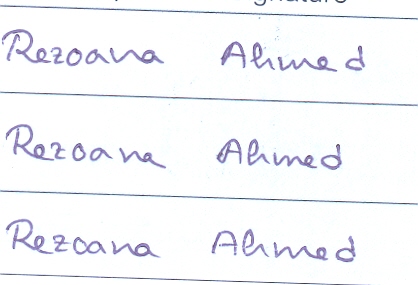 Rezoana Ahmed
Rezoana Ahmed
Rezoana Ahmed